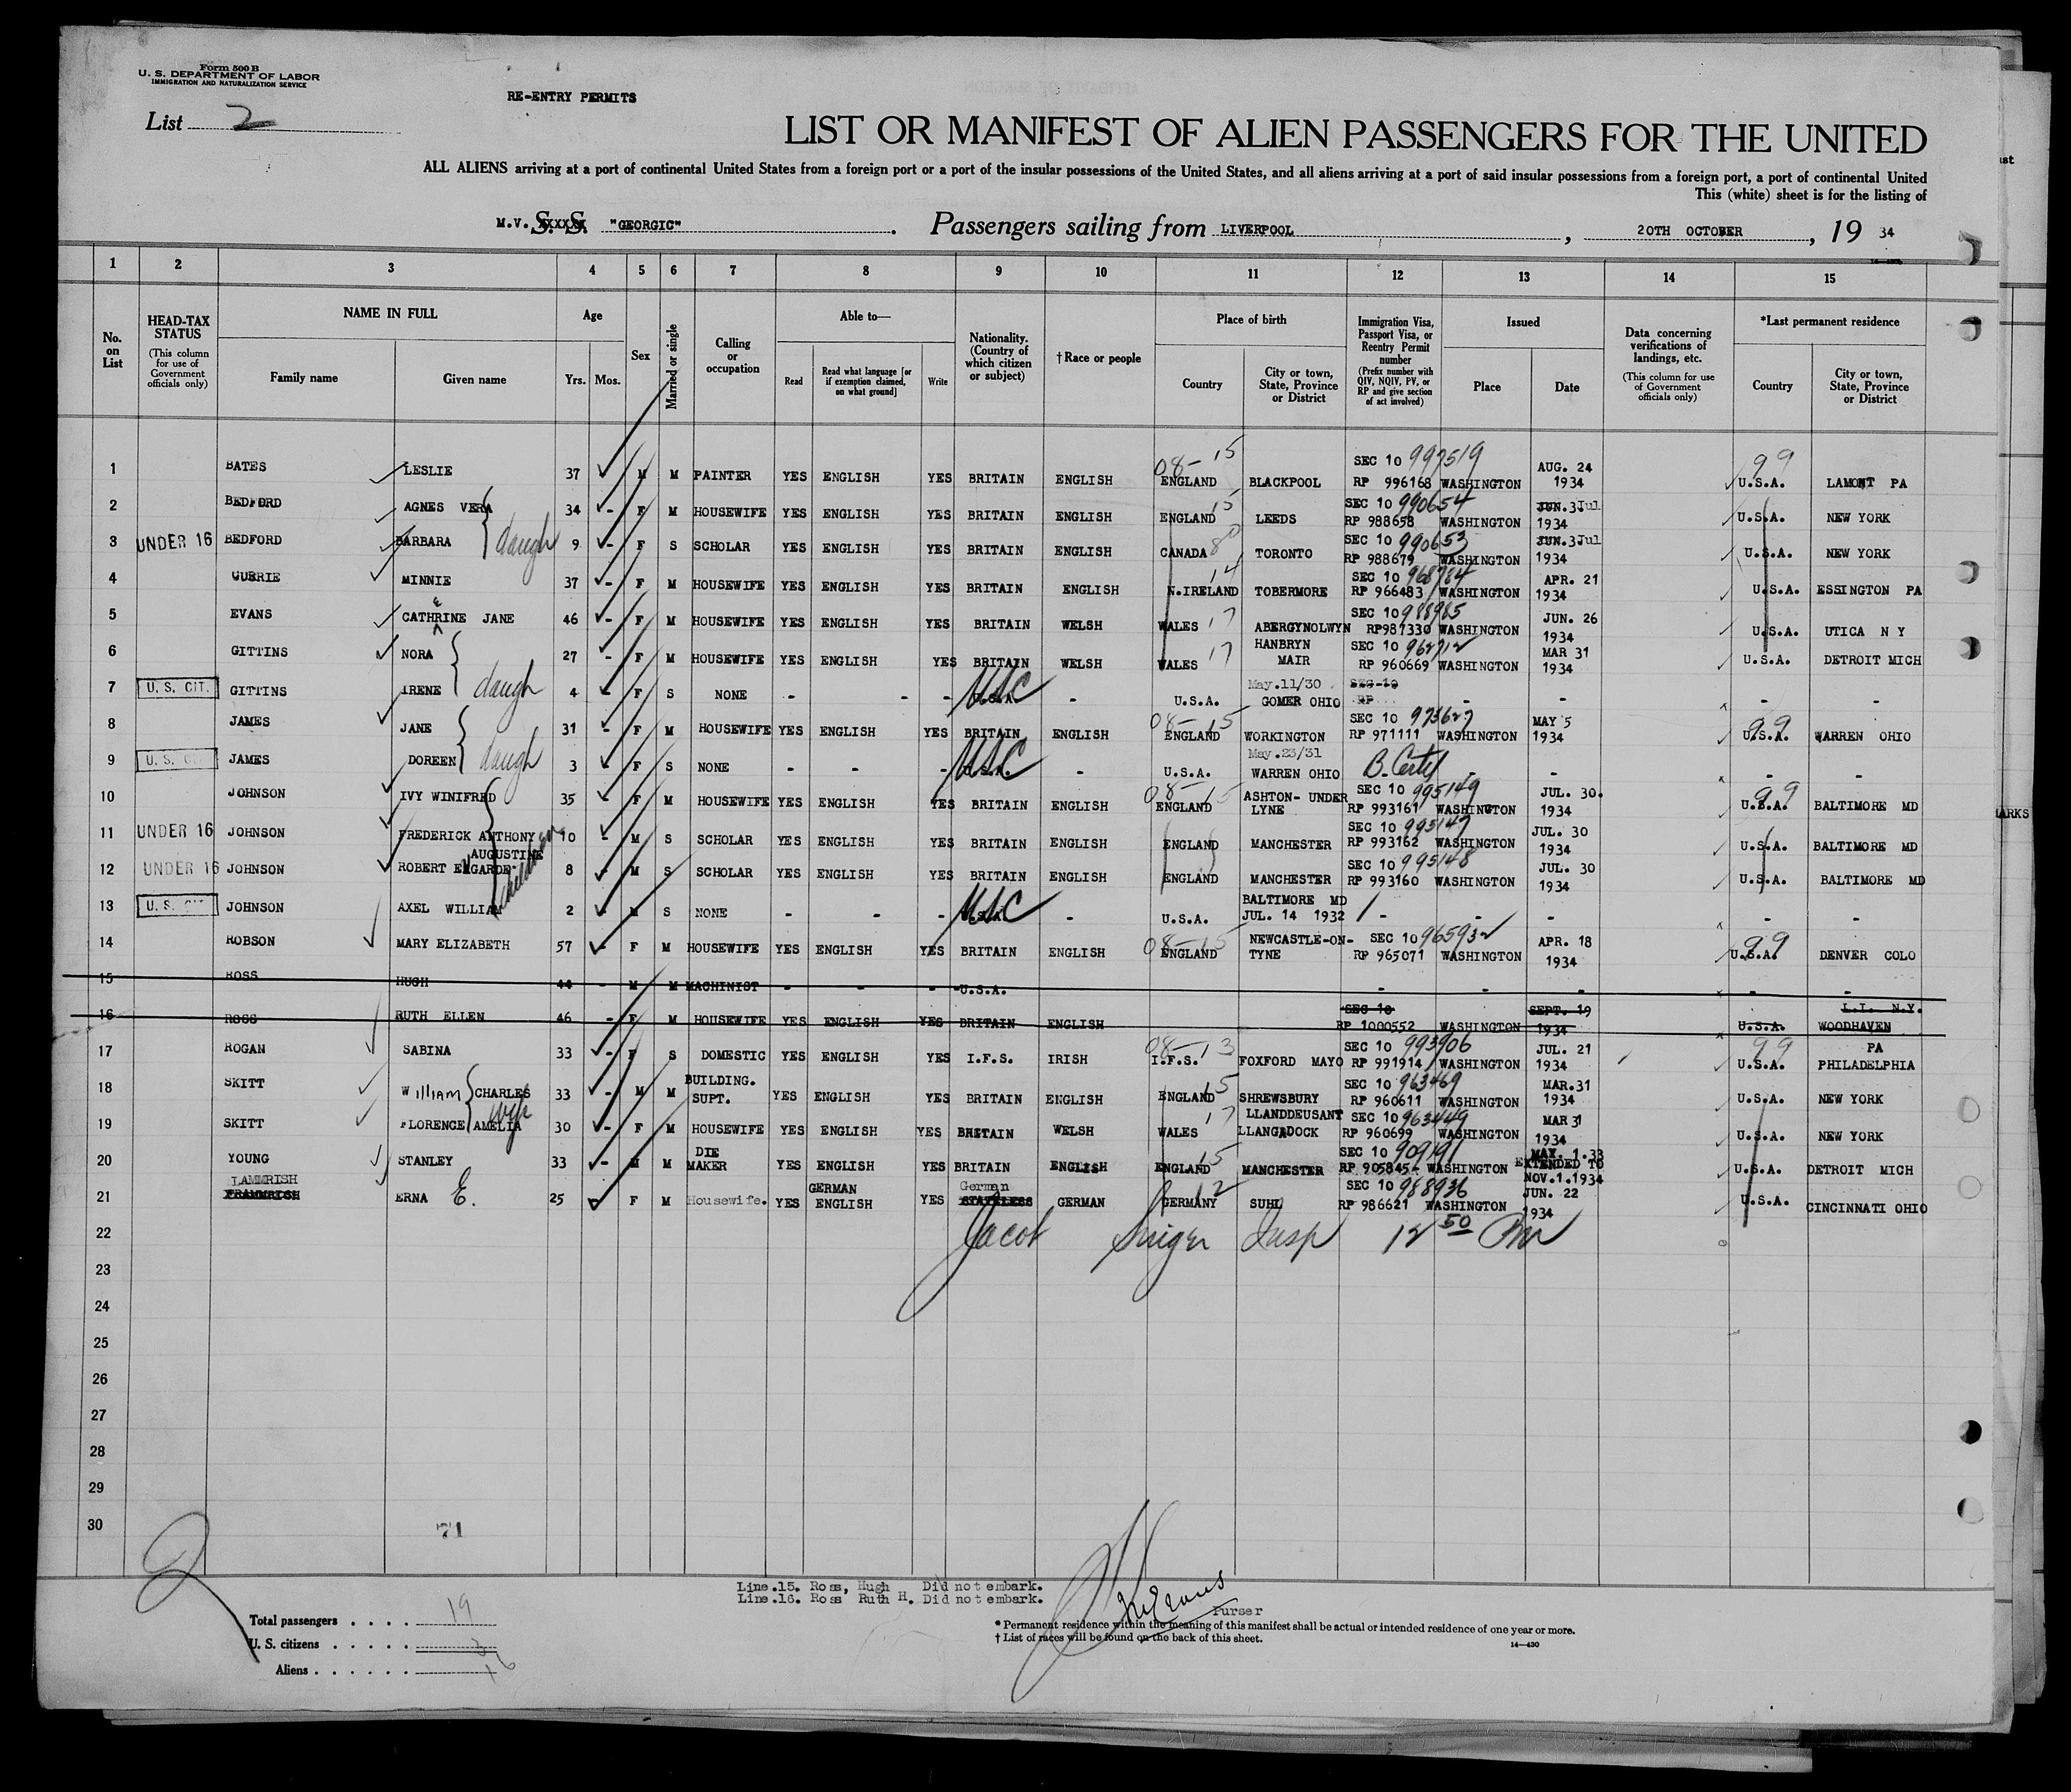 Form 500 B
U. S. DEPARTMENT OF LABOR
IMMIGRATION AND NATURALIZATION SERVICE
RE-ENTRY PERMITS
List 2
LIST OR MANIFEST OF ALIEN PASSENGERS FOR THE UNITED
ALL ALIENS arriving at a port of continental United States from a foreign port or a port of the insular possessions of the United States, and all aliens arriving at a port of said insular possessions from a foreign port, a port of continental United
This (white) sheet is for the listing of
M.V. S. S. "GEORGIC". Passengers sailing from LIVERPOOL, 20TH OCTOBER, 19 34
1 2 3 4 5 6 7 8 9 10 11 12 13 14 15
No. on List
HEAD-TAX STATUS (This column for use of Government officials only)
NAME IN FULL Family name Given name
Age Yrs. Mos.
Sex
Married or single
Calling or occupation
Able to— Read Read what language [or if exemption claimed, on what ground] Write
Nationality. (Country of which citizen or subject)
† Race or people
Place of birth Country City or town, State, Province or District
Immigration Visa, Passport Visa, or Reentry Permit number (Prefix number with QIV, NQIV, PV, or RP and give section of act involved)
Issued Place Date
Data concerning verifications of landings, etc. (This column for use of Government officials only)
*Last permanent residence Country City or town, State, Province or District
1 BATES LESLIE 37 M M PAINTER YES ENGLISH YES BRITAIN ENGLISH 08-15 ENGLAND BLACKPOOL SEC 10 997519 RP 996168 WASHINGTON AUG. 24 1934 99 U.S.A. LAMONT PA
2 BEDFORD AGNES VERA 34 F M HOUSEWIFE YES ENGLISH YES BRITAIN ENGLISH 15 ENGLAND LEEDS SEC 10 990654 RP 988658 WASHINGTON JUN. 3 Jul 1934 U.S.A. NEW YORK
3 UNDER 16 BEDFORD BARBARA daugh 9 F S SCHOLAR YES ENGLISH YES BRITAIN ENGLISH CANADA 80 TORONTO SEC 10 990653 RP 988679 WASHINGTON JUN. 3 Jul 1934 U.S.A. NEW YORK
4 CURRIE MINNIE 37 F M HOUSEWIFE YES ENGLISH YES BRITAIN ENGLISH 14 N.IRELAND TOBERMORE SEC 10 968784 RP 966483 WASHINGTON APR. 21 1934 U.S.A. ESSINGTON PA
5 EVANS CATHERINE JANE 46 F M HOUSEWIFE YES ENGLISH YES BRITAIN WELSH WALES 17 ABERGYNOLWYN SEC 10 988985 RP987330 WASHINGTON JUN. 26 1934 U.S.A. UTICA N Y
6 GITTINS NORA 27 F M HOUSEWIFE YES ENGLISH YES BRITAIN WELSH WALES 17 HANBRYN MAIR SEC 10 962712 RP 960669 WASHINGTON MAR 31 1934 U.S.A. DETROIT MICH
7 U.S. CIT. GITTINS IRENE daugh 4 F S NONE - - - USC U.S.A. - U.S.A. May.11/30 GOMER OHIO SEC 10 RP - - - -
8 JAMES JANE 31 F M HOUSEWIFE YES ENGLISH YES BRITAIN ENGLISH 08-15 ENGLAND WORKINGTON SEC 10 973627 RP 971111 WASHINGTON MAY 5 1934 99 U.S.A. WARREN OHIO
9 U.S. CIT. JAMES DOREEN daugh 3 F S NONE - - - USC U.S.A. - U.S.A. May.23/31 WARREN OHIO B. Certif - - - -
10 JOHNSON IVY WINIFRED 35 F M HOUSEWIFE YES ENGLISH YES BRITAIN ENGLISH 08-15 ENGLAND ASHTON-UNDER LYNE SEC 10 995149 RP 993161 WASHINGTON JUL. 30. 1934 99 U.S.A. BALTIMORE MD
11 UNDER 16 JOHNSON FREDERICK ANTHONY children 10 M S SCHOLAR YES ENGLISH YES BRITAIN ENGLISH ENGLAND MANCHESTER SEC 10 995147 RP 993162 WASHINGTON JUL. 30 1934 U.S.A. BALTIMORE MD
12 UNDER 16 JOHNSON ROBERT AUGUSTINE 8 M S SCHOLAR YES ENGLISH YES BRITAIN ENGLISH ENGLAND MANCHESTER SEC 10 995148 RP 993160 WASHINGTON JUL. 30 1934 U.S.A. BALTIMORE MD
13 U.S. CIT JOHNSON AXEL WILLIAM 2 M S NONE - - - USC U.S.A. - U.S.A. BALTIMORE MD JUL. 14 1932 - - - - -
14 ROBSON MARY ELIZABETH 57 F M HOUSEWIFE YES ENGLISH YES BRITAIN ENGLISH 08-15 ENGLAND NEWCASTLE-ON-TYNE SEC 10 965932 RP 965071 WASHINGTON APR. 18 1934 99 U.S.A. DENVER COLO
15 ROSS HUGH 44 - M M MACHINIST - - - U.S.A. - - - - -
16 ROSS RUTH ELLEN 46 - F M HOUSEWIFE YES ENGLISH YES BRITAIN ENGLISH SEC 10 RP 1000552 WASHINGTON SEPT. 19 1934 U.S.A. L.I. N.Y. WOODHAVEN
17 ROGAN SABINA 33 F S DOMESTIC YES ENGLISH YES I.F.S. IRISH 08-13 I.F.S. FOXFORD MAYO SEC 10 993906 RP 991914 WASHINGTON JUL. 21 1934 99 U.S.A. PA PHILADELPHIA
18 SKITT William CHARLES 33 M M BUILDING. SUPT. YES ENGLISH YES BRITAIN ENGLISH ENGLAND 15 SHREWSBURY SEC 10 963469 RP 960611 WASHINGTON MAR.31 1934 U.S.A. NEW YORK
19 SKITT FLORENCE AMELIA wife 30 F M HOUSEWIFE YES ENGLISH YES BRITAIN WELSH WALES 17 LLANDDEUSANT LLANGADOCK SEC 10 963449 RP 960699 WASHINGTON MAR 31 1934 U.S.A. NEW YORK
20 YOUNG STANLEY 33 M M DIE MAKER YES ENGLISH YES BRITAIN ENGLISH ENGLAND 15 MANCHESTER SEC 10 909191 RP 905845 WASHINGTON MAY. 1.33 EXTENDED TO NOV.1.1934 U.S.A. DETROIT MICH
21 LAMMRISH ERNA E. 25 F M Housewife. YES GERMAN ENGLISH YES German STATELESS GERMAN GERMANY 12 SUHL SEC 10 988936 RP 986621 WASHINGTON JUN. 22 1934 U.S.A. CINCINNATI OHIO
22 Jacob Insp 12 50 PM
23
24
25
26
27
28
29
30
71
Line.15. Ross, Hugh Did not embark.
Line.16. Ross Ruth H. Did not embark.
Purser
Total passengers . . . . 19
U. S. citizens . . . . . 3
Aliens . . . . . . 16
* Permanent residence within the meaning of this manifest shall be actual or intended residence of one year or more.
† List of races will be found on the back of this sheet.
14—430